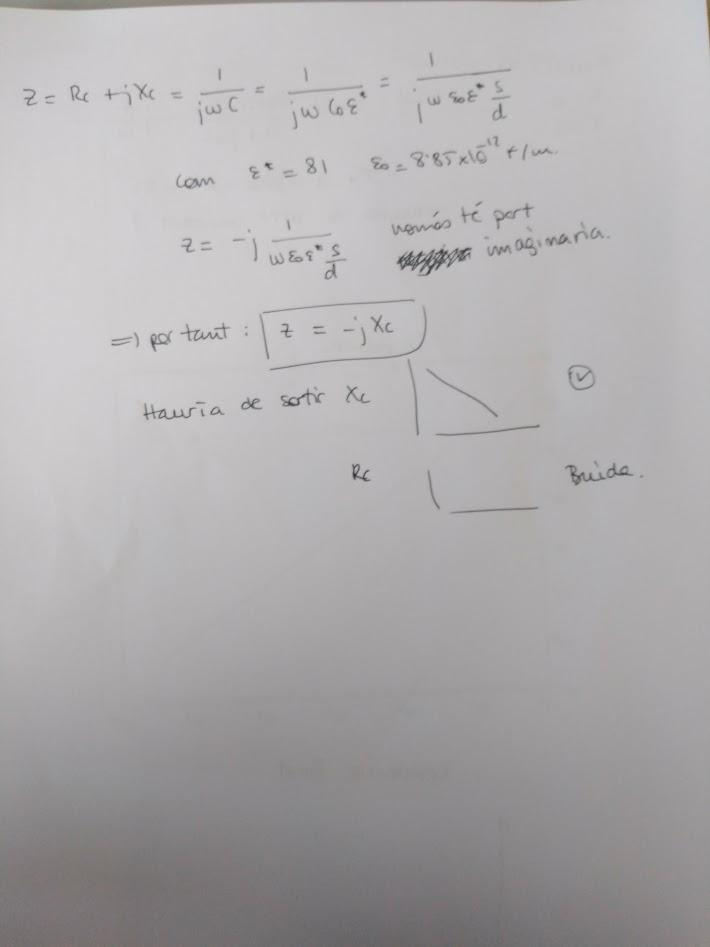 Z = Rc + j Xc = 1/(jωC) = 1/(jω C₀ε*) = 1/(j ω ε₀ε* S/d)
com ε* = 81 ε₀ = 8.85x10⁻¹² F/m.
Z = -j 1/(ωε₀ε* S/d) només té part
imaginaria.
=) per tant : Z = -j Xc
Hauria de sortir Xc
Rc Buida.